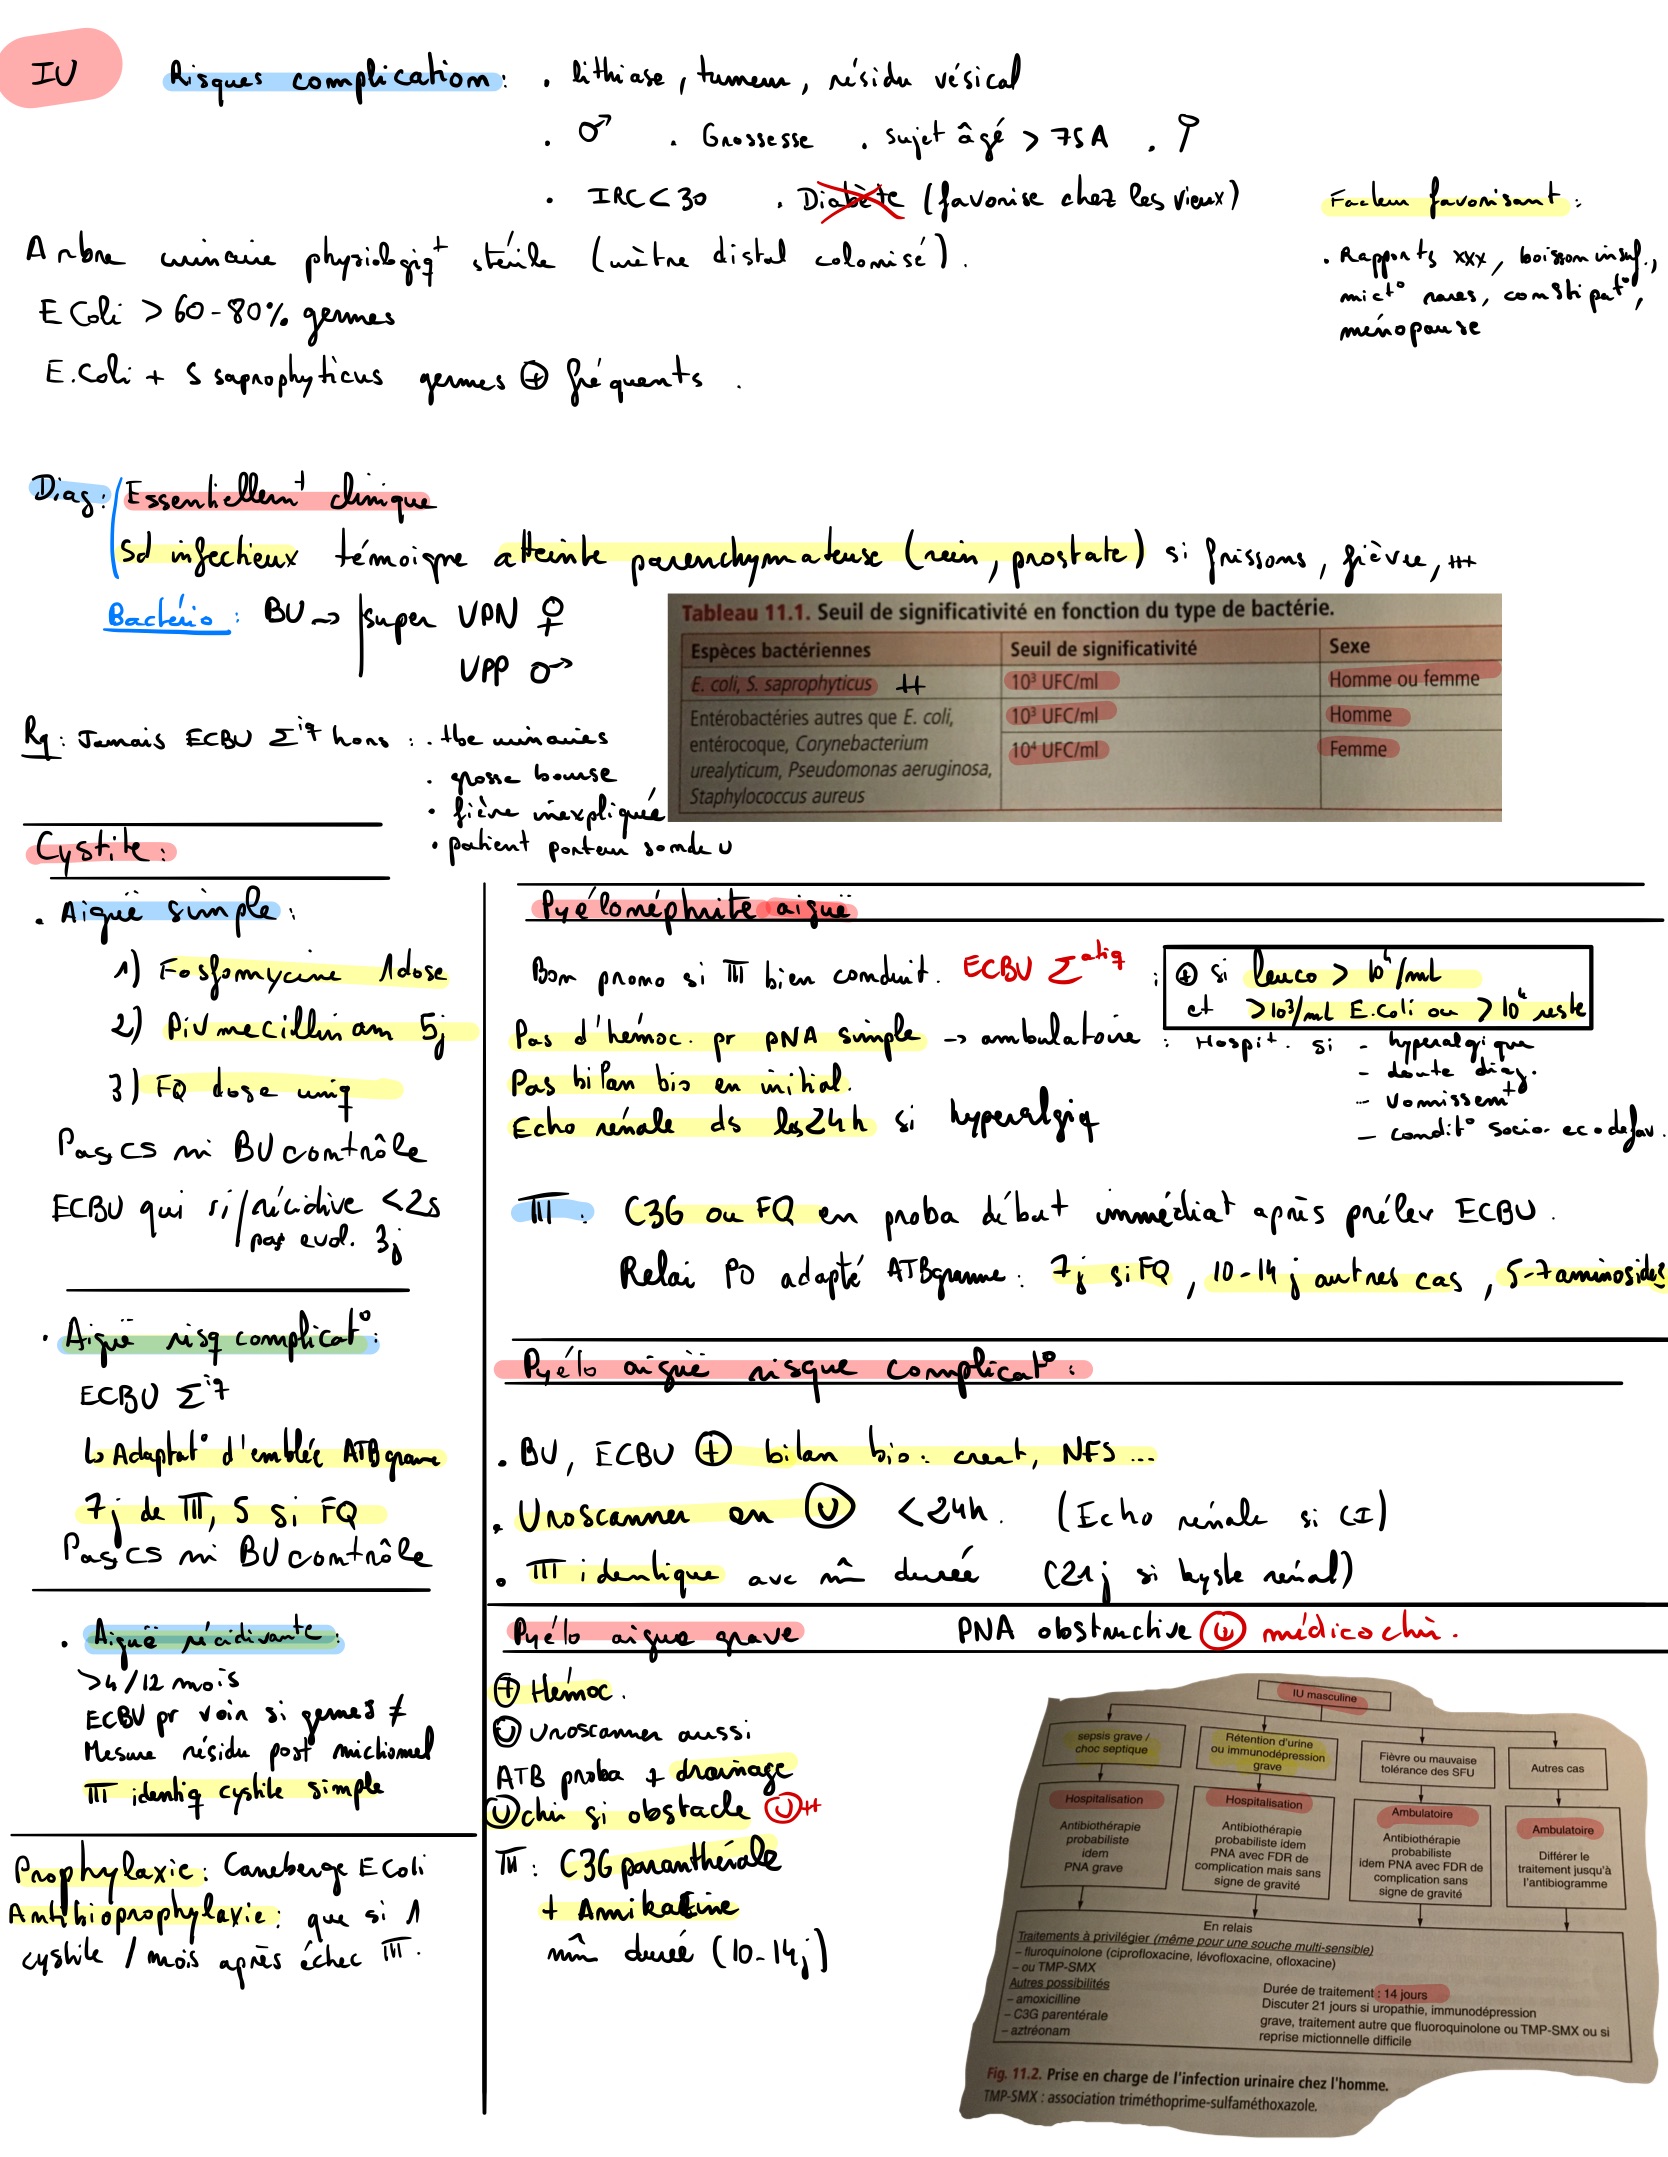 IU
Risques complication : . lithiase, tumeur, résidu vésical
. ♂ . Grossesse . sujet âgé > 75A .
. IRC < 30 . Diabète (favorise chez les vieux)
Facteur favorisant :
. Rapports xxx, boisson insuf.,
mict° rares, constipat°,
ménopause
Arbre urinaire physiologiq+ stérile (urètre distal colonisé).
E Coli > 60-80% germes
E.Coli + S saprophyticus germes ⊕ fréquents .
Diag : Essentiellem+ clinique
Sd infectieux témoigne atteinte parenchymateuse (rein, prostate) si frissons, fièvre, +++
Bactério : BU → super VPN ♀
VPP ♂
Tableau 11.1. Seuil de significativité en fonction du type de bactérie.
Espèces bactériennes Seuil de significativité Sexe
E. coli, S. saprophyticus ++ 10³ UFC/ml Homme ou femme
Entérobactéries autres que E. coli, 10³ UFC/ml Homme
entérocoque, Corynebacterium 10⁴ UFC/ml Femme
urealyticum, Pseudomonas aeruginosa,
Staphylococcus aureus
Rq : Jamais ECBU Σiq hors : . tbe urinaires
. grosse bourse
. fièvre inexpliquée
. patient porteur sonde U
Cystite :
. Aiguë simple :
1) Fosfomycine 1dose
2) Pivmecillinam 5j
3) FQ dose uniq
Pas CS ni BU contrôle
ECBU qui si / récidive < 2s
pas evol. 3j
. Aiguë risq complicat° :
ECBU Σiq
↳ Adaptat° d'emblée ATBgrame
7j de TTT, 5 si FQ
Pas CS ni BU contrôle
. Aiguë récidivante :
>4/12 mois
ECBU pr voir si germes ≠
Mesure résidu post mictionnel
TTT identiq cystite simple
Prophylaxie : Caneberge E Coli
Antibioprophylaxie : que si 1
cystite / mois après échec TTT.
Pyélonéphrite aiguë
Bon prono si TTT bien conduit. ECBU Σatiq : ⊕ si leuco > 10⁴/ml
et >10³/ml E.Coli ou > 10⁴ reste
Pas d'hémoc. pr PNA simple → ambulatoire : Hospit. si - hyperalgique
- doute diag.
- vomissem+
- condit° socio-eco defav.
Pas bilan bio en initial.
Echo rénale ds les 24h si hyperalgiq
TTT : C3G ou FQ en proba début immédiat après prélev ECBU .
Relai PO adapté ATBgramme : 7j si FQ, 10-14j autres cas, 5-7 aminosides
Pyélo aiguë risque complicat° :
. BU, ECBU ⊕ bilan bio : creat, NFS ...
. Uroscanner en Ⓤ <24h. (Echo rénale si CI)
. TTT identique avc mm durée (21j si kyste rénal)
Pyélo aiguë grave PNA obstructive Ⓤ médicochir.
⊕ Hémoc.
Ⓤ Uroscanner aussi
ATB proba + drainage
Ⓤ chir si obstacle Ⓤ++
TTT : C3G paranthérale
+ Amikacine
mm durée (10-14j)
IU masculine
sepsis grave /
choc septique
Rétention d'urine
ou immunodépression
grave
Fièvre ou mauvaise
tolérance des SFU
Autres cas
Hospitalisation
Antibiothérapie
probabiliste
idem
PNA grave
Hospitalisation
Antibiothérapie
probabiliste idem
PNA avec FDR de
complication mais sans
signe de gravité
Ambulatoire
Antibiothérapie
probabiliste
idem PNA avec FDR de
complication sans
signe de gravité
Ambulatoire
Différer le
traitement jusqu'à
l'antibiogramme
En relais
Traitements à privilégier (même pour une souche multi-sensible)
– fluroquinolone (ciprofloxacine, lévofloxacine, ofloxacine)
– ou TMP-SMX
Autres possibilités
– amoxicilline
– C3G parentérale
– aztréonam
Durée de traitement : 14 jours
Discuter 21 jours si uropathie, immunodépression
grave, traitement autre que fluoroquinolone ou TMP-SMX ou si
reprise mictionnelle difficile
Fig. 11.2. Prise en charge de l'infection urinaire chez l'homme.
TMP-SMX : association triméthoprime-sulfaméthoxazole.